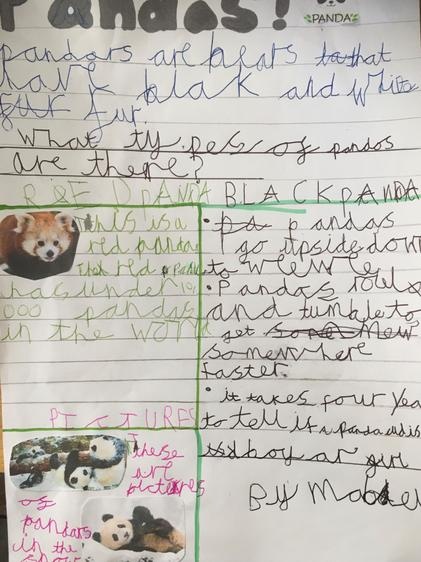 Pandas!
PANDA
pandars are bears to that
have blak and white
fur fur.
What types of pandas
are there?
RED PANDA
This is a
red panda
The red panda
has under 10,
000 pandas
in the world
BLACK PANDA
• pa pandas
go upside down
to
• Pandas roll
and tumble to
get somew
somewhere
faster.
• it takes four Yea
to tell if a panda
boy or girl
By
PICTURES
These
are
pictures
of
pandars
in the
snow